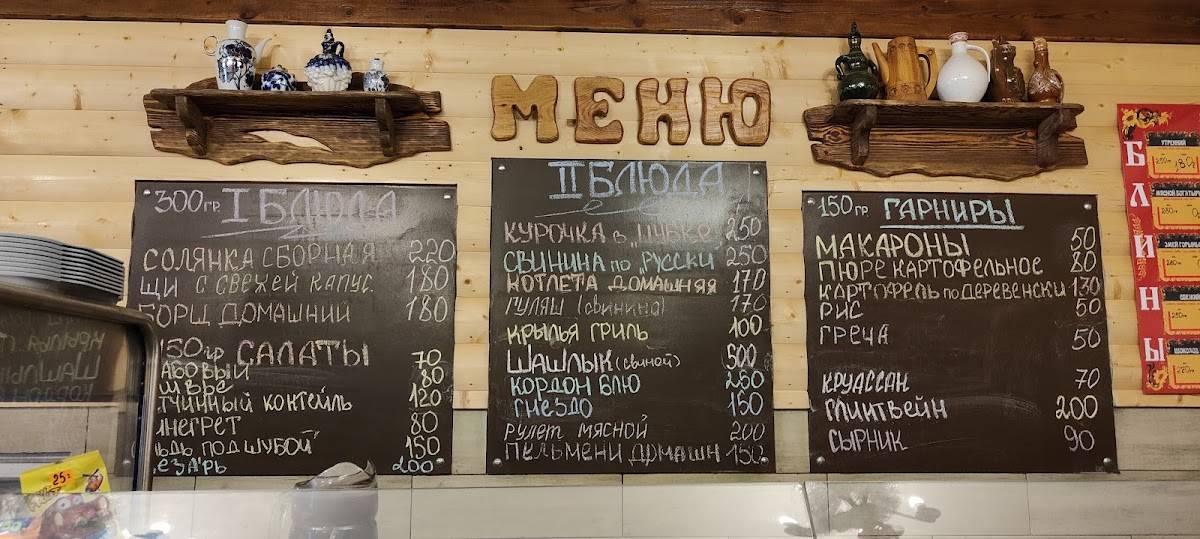 МЕНЮ
300гр. I БЛЮДА
СОЛЯНКА СБОРНАЯ 220
ЩИ С СВЕЖЕЙ КАПУС. 180
БОРЩ ДОМАШНИЙ 180
150гр. САЛАТЫ
АБОВЫЙ 70
80
ТЧИННЫЙ КОКТЕЙЛЬ 120
НЕГРЕТ 80
ЛЬДЬ ПОД ШУБОЙ" 150
ЕЗАРЬ 200
II БЛЮДА
КУРОЧКА В "ШУБКЕ" 250
СВИНИНА ПО "РУССКИ 250
КОТЛЕТА ДОМАШНЯЯ 170
ГУЛЯШ (свинина) 170
КРЫЛЬЯ ГРИЛЬ 100
ШАШЛЫК (свиной) 500
КОРДОН БЛЮ 250
ГНЕЗДО 150
РУЛЕТ МЯСНОЙ 200
ПЕЛЬМЕНИ ДОМАШН 150
150гр. ГАРНИРЫ
МАКАРОНЫ 50
ПЮРЕ КАРТОФЕЛЬНОЕ 80
КАРТОФЕЛЬ ПО ДЕРЕВЕНСКИ 130
РИС 50
ГРЕЧА 50
КРУАССАН 70
ГЛИНТВЕЙН 200
СЫРНИК 90
БЛИНЫ
УТРЕННИЙ
МЯСНОЙ БОГАТЫР
ЗМЕЙ ГОРЫНЫ
25